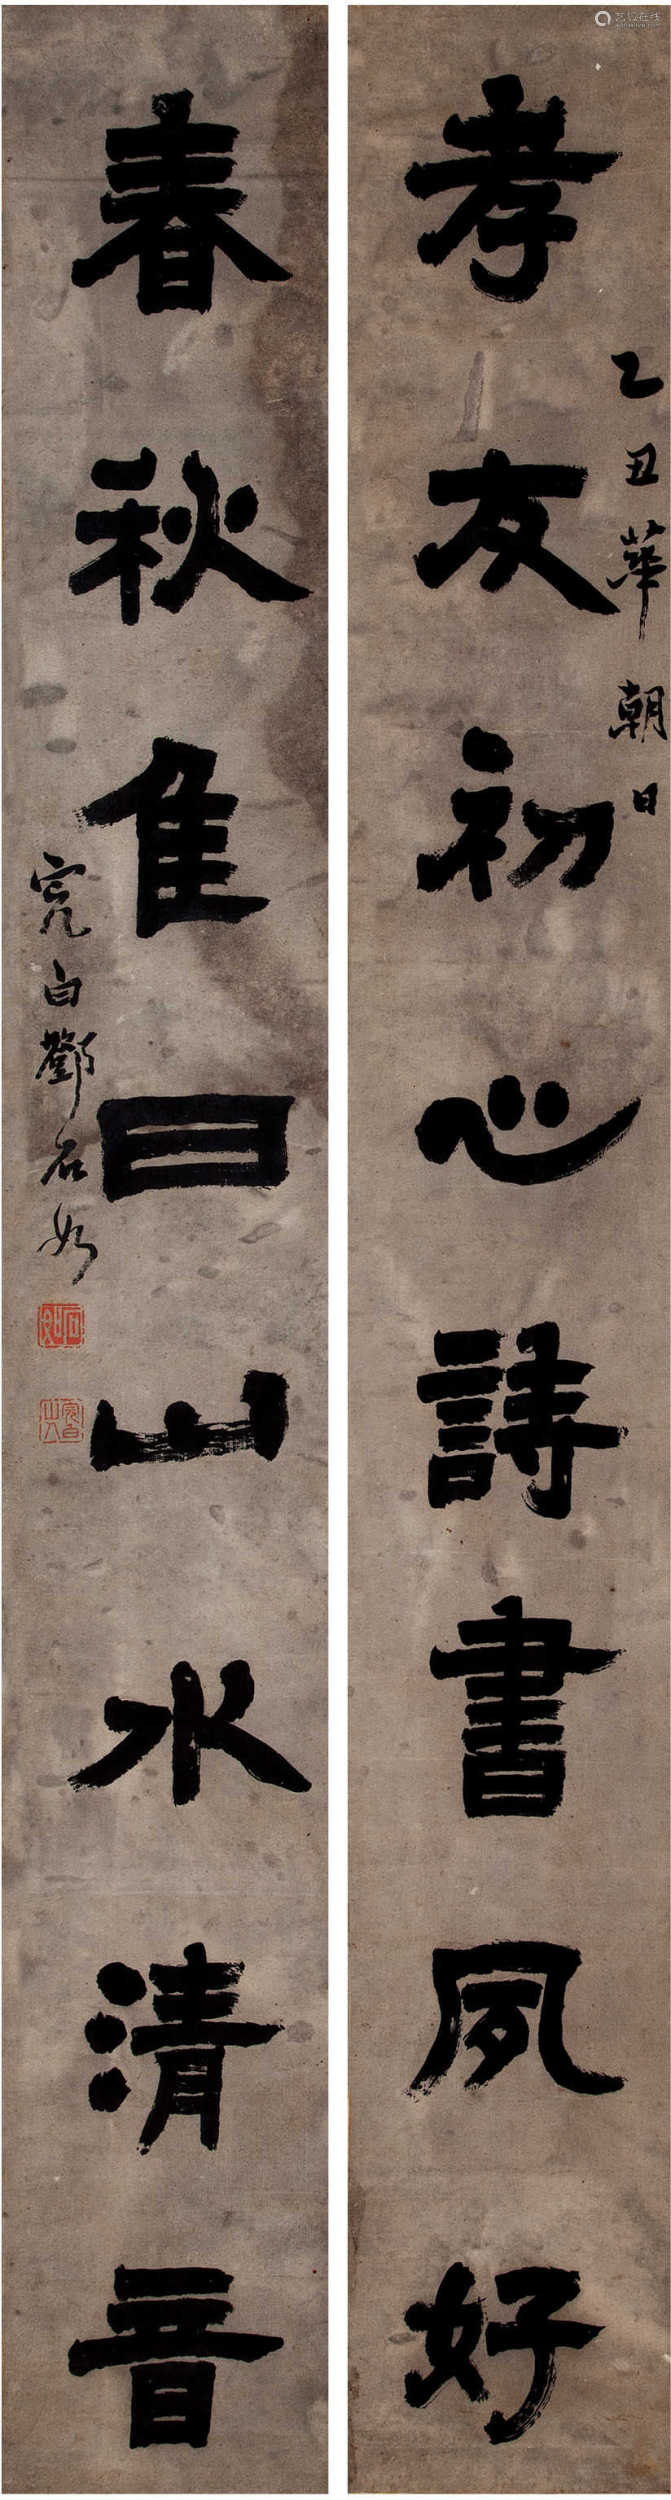 孝友初心詩書夙好
乙丑華朝日
春秋隹日山水清音
完白鄧石如
石如
完白山人
艺狐在线